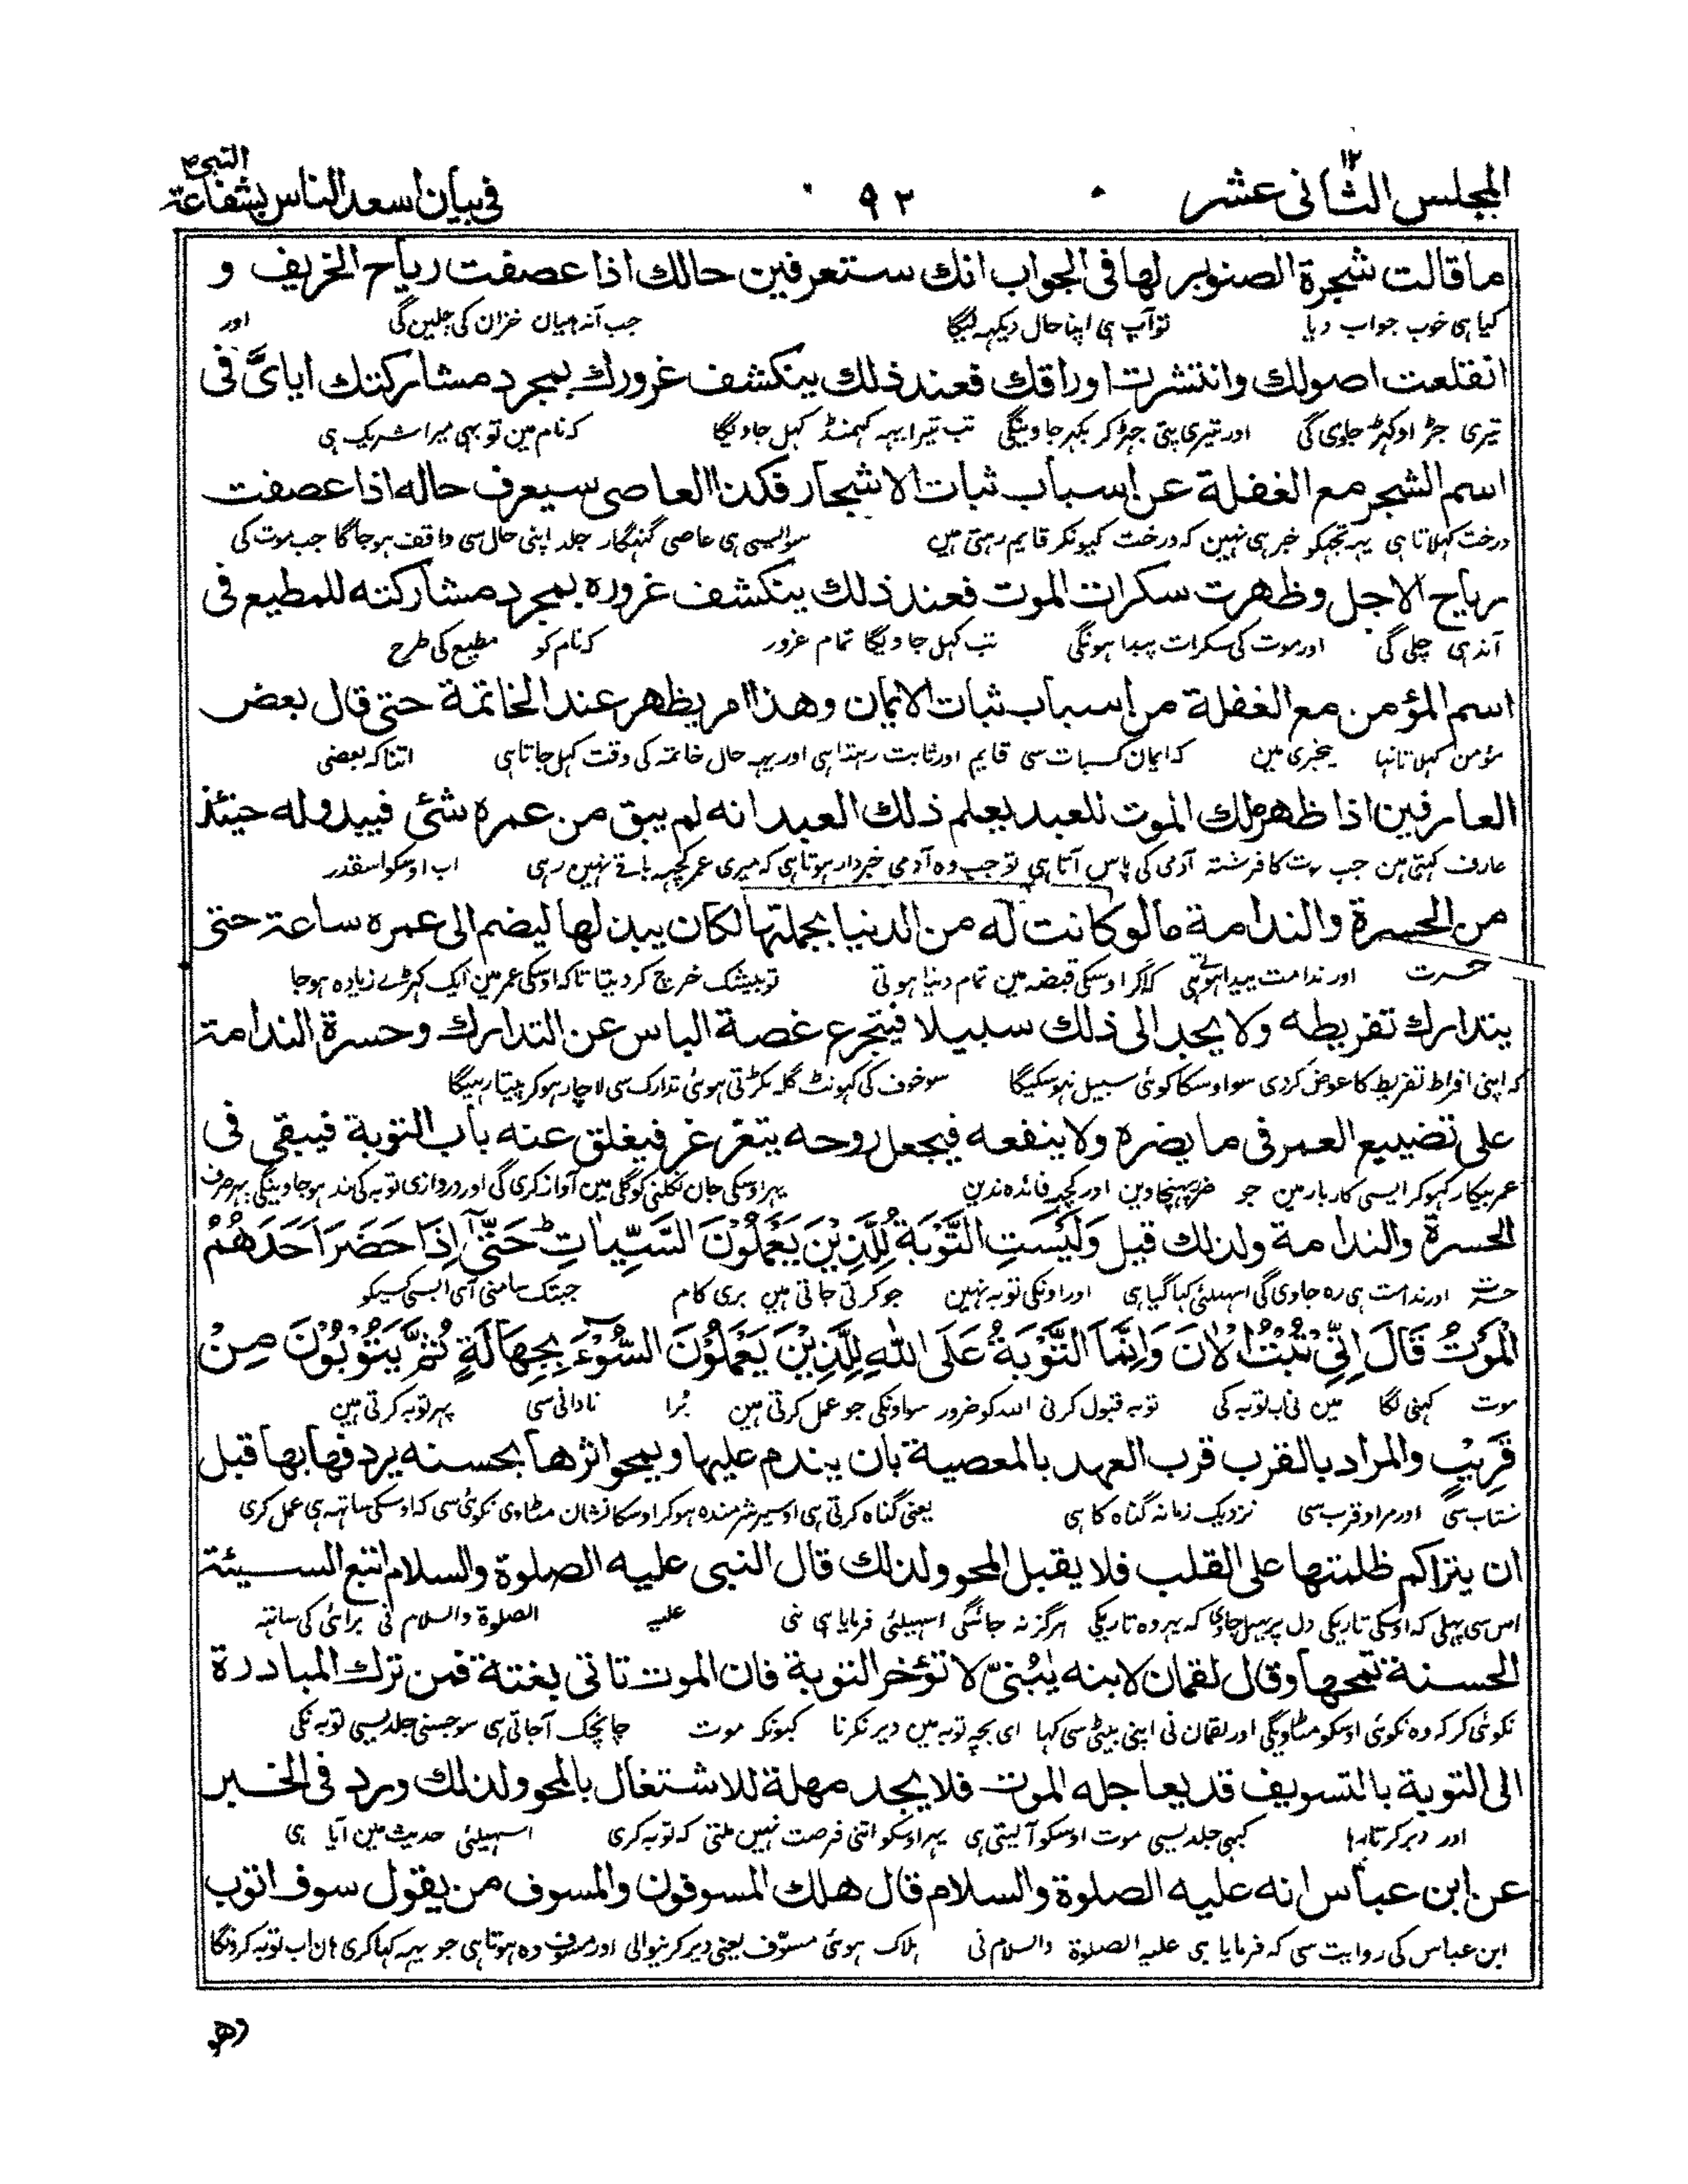 المجلس الثانى عشر ١٢
٩٢
فى بيان اسعد الناس بشفاعة النبىؐ
ما قالت شجرة الصنوبر لها فى الجواب انك ستعرفين حالك اذا عصفت رياح الخريف و
كيا ہى خوب جواب ديا تو آپ ہى اپنا حال ديكہہ ليگا جب آندہيان خزان كى چلين گى اور
انقلعت اصولك وانتشرت اوراقك فعند ذلك ينكشف غرورك بمجرد مشاركتك اياىّ فى
تيرى جڑ اوكہڑ جاوى گى اور تيرى پتى جہڑ كر بكہر جاوينگى تب تيرا يہہ گہمنڈ كہل جاويگا كہ نام مين تو بہى ميرا شريك ہى
اسم الشجر مع الغفلة عن اسباب ثبات الاشجار فكذا العاصى سيعرف حاله اذا عصفت
درخت كہلاتا ہى يہہ تجہكو خبر ہى نہين كہ درخت كيونكر قايم رہتى ہين سو ايسى ہى عاصى گنہگار جلد اپنى حال سى واقف ہو جاگا جب موت كى
رياح الاجل وظهرت سكرات الموت فعند ذلك ينكشف غروره بمجرد مشاركته للمطيع فى
آندہى چلى گى اور موت كى سكرات پيدا ہونگى تب كہل جاويگا تمام غرور كہ نام كو مطيع كى طرح
اسم المؤمن مع الغفلة من اسباب ثبات الايمان وهذا امر يظهر عند الخاتمة حتى قال بعض
مؤمن كہلاتا تہا بيخبرى مين كہ ايمان كس بات سى قايم اور ثابت رہتا ہى اور يہہ حال خاتمہ كى وقت كہل جاتا ہى اتنا كہ بعضى
العارفين اذا ظهر ملك الموت للعبد يعلم ذلك العبد انه لم يبق من عمره شئ فيبدو له حينئذ
عارف كہتى ہين جب موت كا فرشتہ آدمى كى پاس آتا ہى تو جب وہ آدمى خبردار ہوتا ہى كہ ميرى عمر كچہہ باقى نہين رہى اب اوسكو اسقدر
من الحسرة والندامة ما لو كانت له من الدنيا بجملتها لكان يبذلها ليضم الى عمره ساعة حتى
حسرت اور ندامت پيدا ہوتى ہى كہ اگر اوسكى قبضہ مين تمام دنيا ہوتى تو بيشك خرچ كر ديتا تاكہ اوسكى عمر مين ايك گہڑى زيادہ ہو جا
يتدارك تفريطه ولا يجد الى ذلك سبيلا فيتجرع غصة الياس عن التدارك وحسرة الندامة
كہ اپنى افراط تفريط كا عوض كردى سو اوسكا كوئى سبيل نہو سكيگا سو خوف كى گہونٹ گلہ پكڑتى ہوئى تدارك سى لاچار ہوكر پيتا رہيگا
على تضييع العمر فى ما يضره ولا ينفعه فيجعل روحه يتغرغر فيغلق عنه باب التوبة فيبقى فى
عمر بيكار كہو كر ايسى كاربار مين جو ضرر پہنچاوين اور كچہہ فائدہ ندين پہر اوسكى جان نكلنى كو گلى مين آواز كرى گى اور دروازى توبہ كى بند ہو جاوينگى پہر صرف
الحسرة والندامة ولذلك قيل وَلَيْسَتِ التَّوْبَةُ لِلَّذِيْنَ يَعْمَلُوْنَ السَّيِّاٰتِ حَتّٰى اِذَا حَضَرَ اَحَدَهُمُ
حسرت اور ندامت ہى رہ جاوى گى اسيلئى كہا گيا ہى اور اونكى توبہ نہين جو كرتى جاتى ہين برى كام جبتك سامنى آى اليسى كسيكو
الْمَوْتُ قَالَ اِنِّىْ تُبْتُ الْاٰنَ وَاِنَّمَا التَّوْبَةُ عَلَى اللّٰهِ لِلَّذِيْنَ يَعْمَلُوْنَ السُّوْٓءَ بِجَهَالَةٍ ثُمَّ يَتُوْبُوْنَ مِنْ
موت كہنى لگا مين نى اب توبہ كى توبہ قبول كرنى اللہ كو ضرور سو اونكى جو عمل كرتى ہين بُرا نادانى سى پہر توبہ كرتى ہين
قَرِيْبٍ والمراد بالقرب قرب العهد بالمعصية بان يندم عليها ويمحو اثرها بحسنه يردفها بها قبل
شتاب سى اور مراد قرب سى نزديك زمانہ گناہ كا ہى يعنى گناہ كرتى ہى اوسپر شرمندہ ہو كر اوسكا نشان مٹاوى نكوئى سى كہ اوسكى ساتہہ ہى عمل كرى
ان يتراكم ظلمتها على القلب فلا يقبل المحو ولذلك قال النبى عليه الصلوة والسلام اتبع السيئة
اس سى پہلى كہ اوسكى تاريكى دل پر پہيل جاوى كہ پہر وہ تاريكى ہرگز نہ جائگى اسيلئى فرمايا ہى نبى عليہ الصلوة والسلام نى برائى كى ساتہہ
الحسنة تمحها وقال لقمان لابنه يٰبُنَىّ لا تؤخر التوبة فان الموت تاتى بغتة فمن ترك المبادرة
نكوئى كر كہ وہ نكوئى اوسكو مٹاويگى اور لقمان نى اپنى بيٹى سى كہا اى بچہ توبہ مين دير نكرنا كيونكہ موت چانچك آجاتى ہى سو جسنى جلديسى توبہ نكى
الى التوبة بالتسويف قد يعاجله الموت فلا يجد مهلة للاشتغال بالمحو ولذلك ورد فى الخبر
اور دير كرتا رہا كبہى جلديسى موت اوسكو آليتى ہى پہر اوسكو اتنى فرصت نہين ملتى كہ توبہ كرى اسيلئى حديث مين آيا ہى
عن ابن عباس انه عليه الصلوة والسلام قال هلك المسوفون والمسوف من يقول سوف اتوب
ابن عباس كى روايت سى كہ فرمايا ہى عليہ الصلوة والسلام نى ہلاك ہوئى مسوّف يعنى دير كرنيوالى اور مسوف وہ ہوتا ہى جو يہہ كہا كرى ہان اب توبہ كرونگا